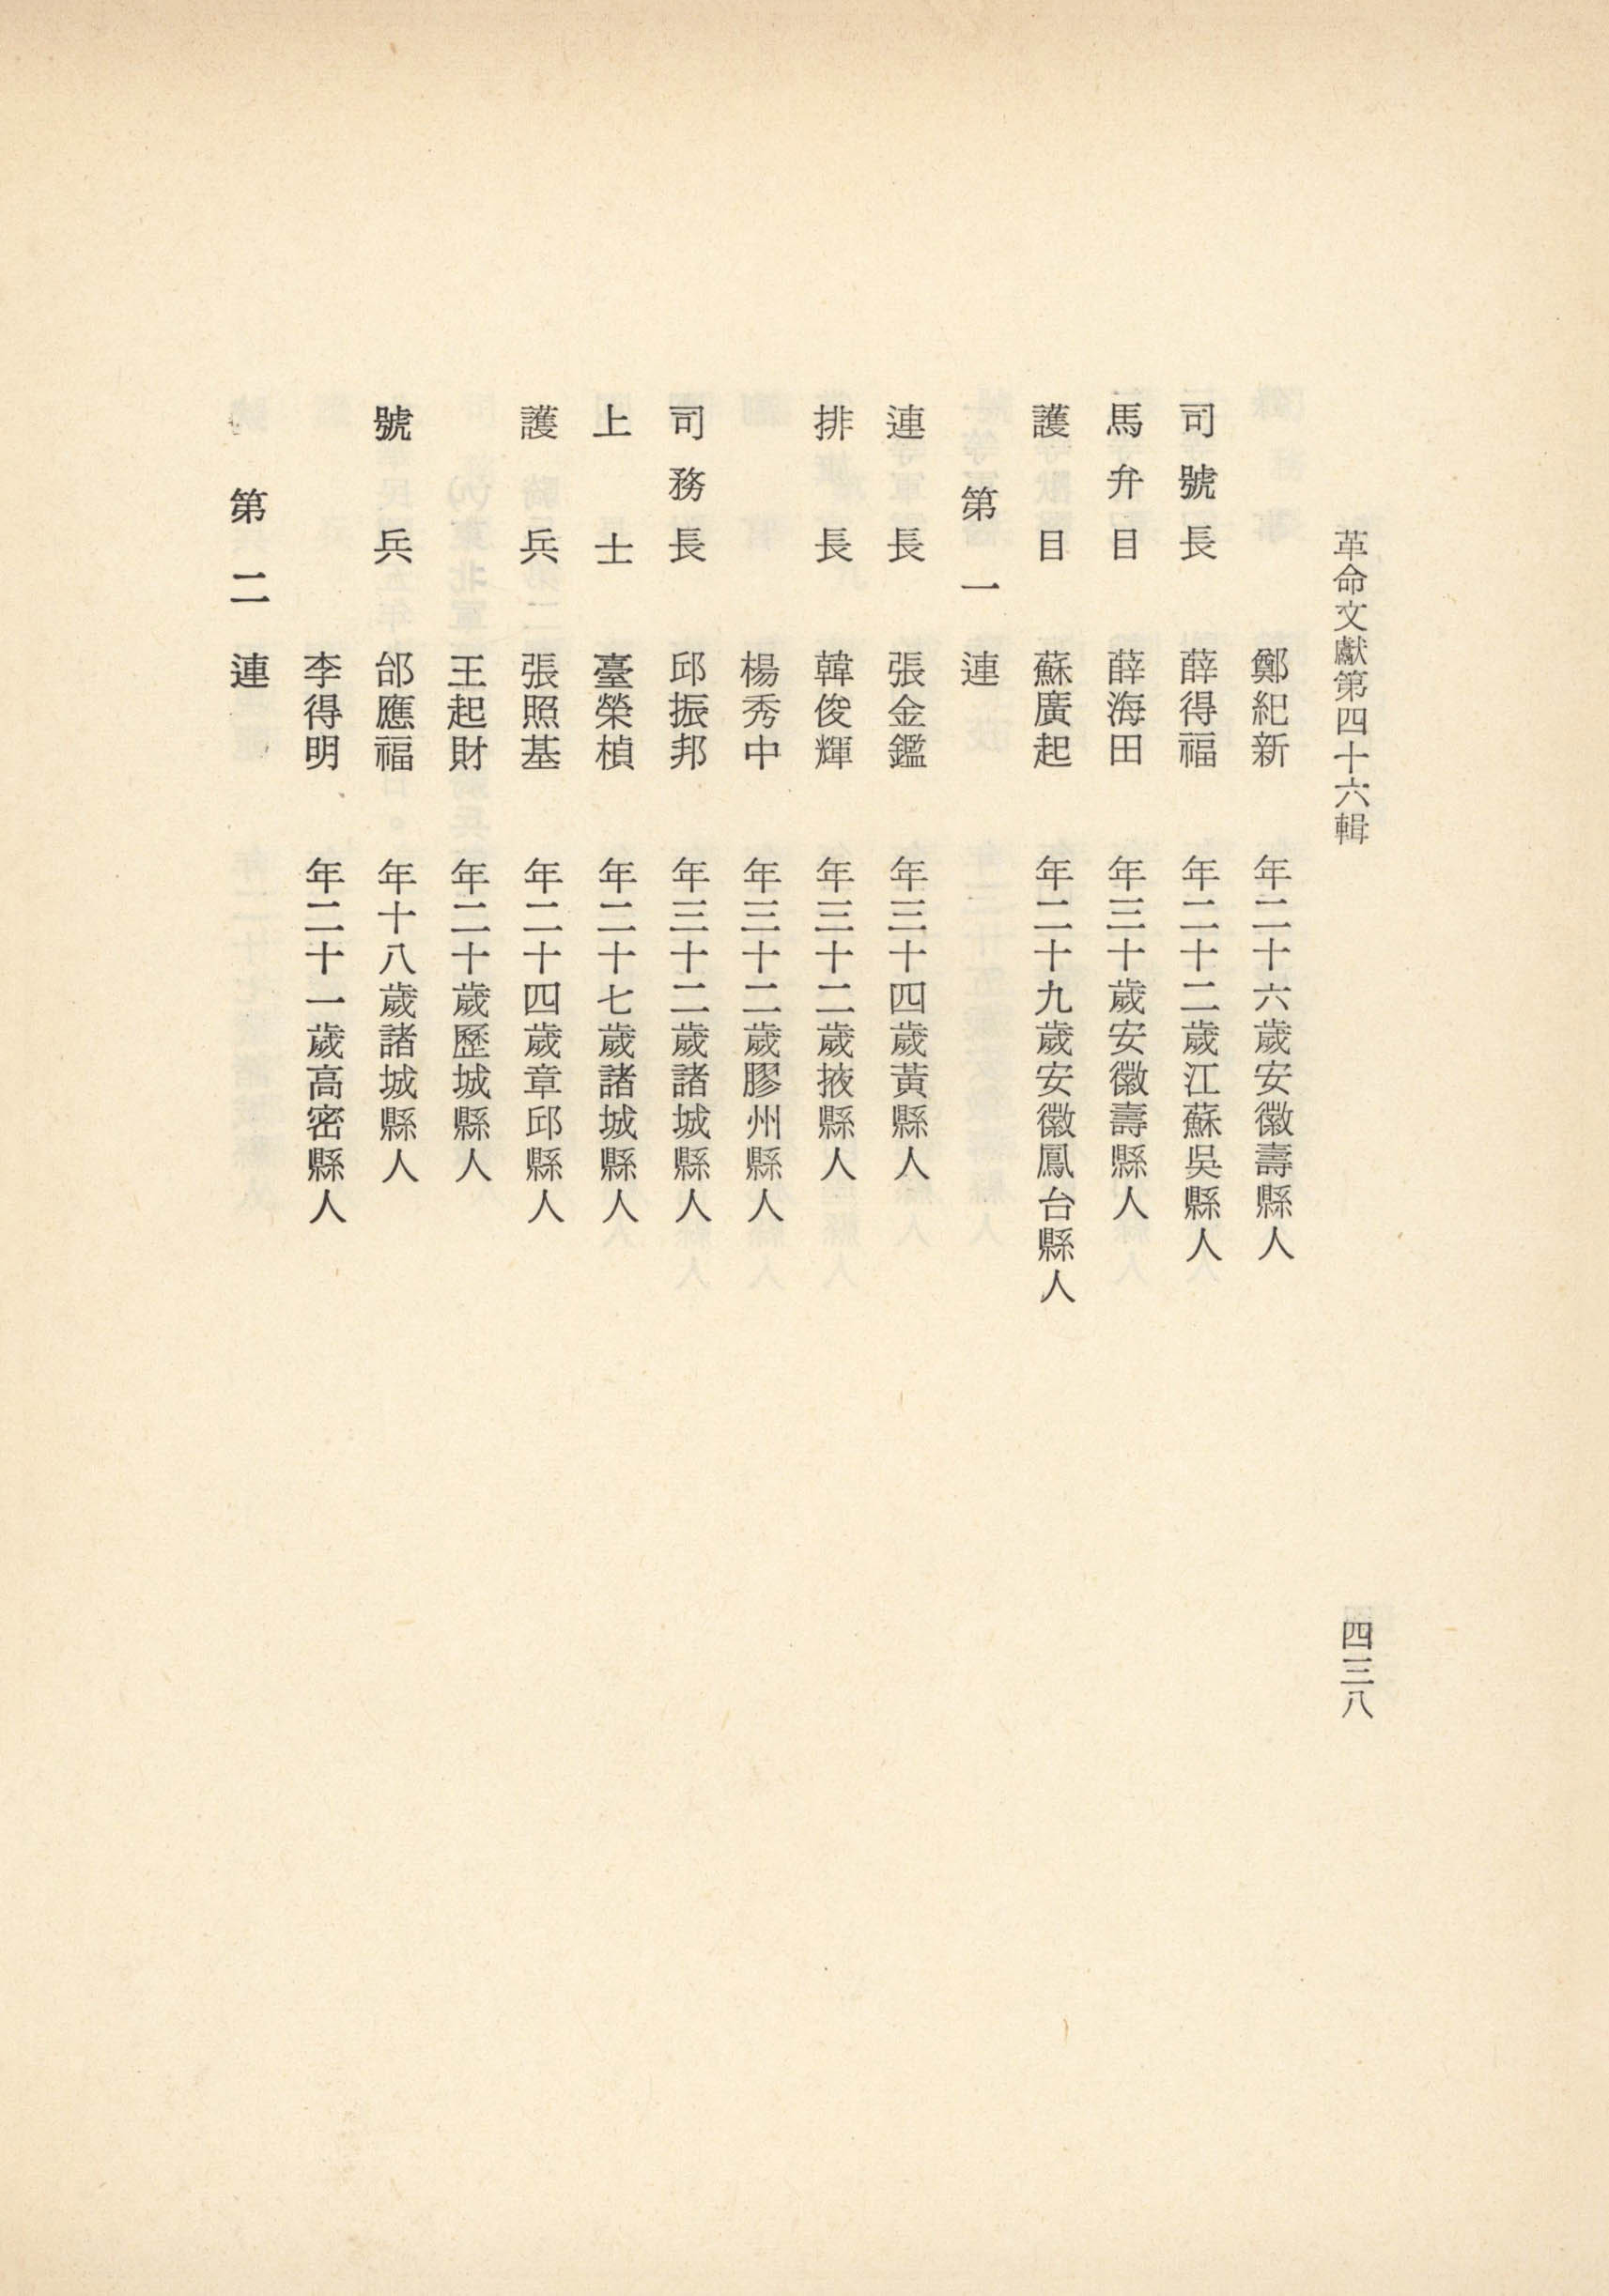 革命文獻第四十六輯
四三八
鄭紀新 年二十六歲安徽壽縣人
司號長 薛得福 年二十二歲江蘇吳縣人
馬弁目 薛海田 年三十歲安徽壽縣人
護目 蘇廣起 年二十九歲安徽鳳台縣人
第一連
連長 張金鑑 年三十四歲黃縣人
排長 韓俊輝 年三十二歲掖縣人
楊秀中 年三十二歲膠州縣人
司務長 邱振邦 年三十二歲諸城縣人
上士 臺榮楨 年二十七歲諸城縣人
護兵 張照基 年二十四歲章邱縣人
王起財 年二十歲歷城縣人
號兵 邰應福 年十八歲諸城縣人
李得明 年二十一歲高密縣人
第二連